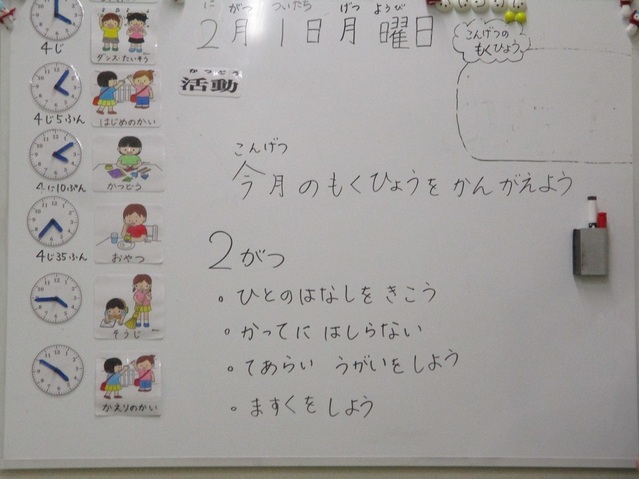 4じ
ダンス・たいそう
4じ5ふん
はじめのかい
4じ10ぷん
かつどう
4じ35ふん
おやつ
そうじ
かえりのかい
に がつ ついたち げつ ようび
2月1日月曜日
かつどう
活動
こんげつの
もくひょう
こんげつ
今月のもくひょうをかんがえよう
2がつ
• ひとのはなしをきこう
• かってに はしらない
• てあらい うがいをしよう
• ますくをしよう